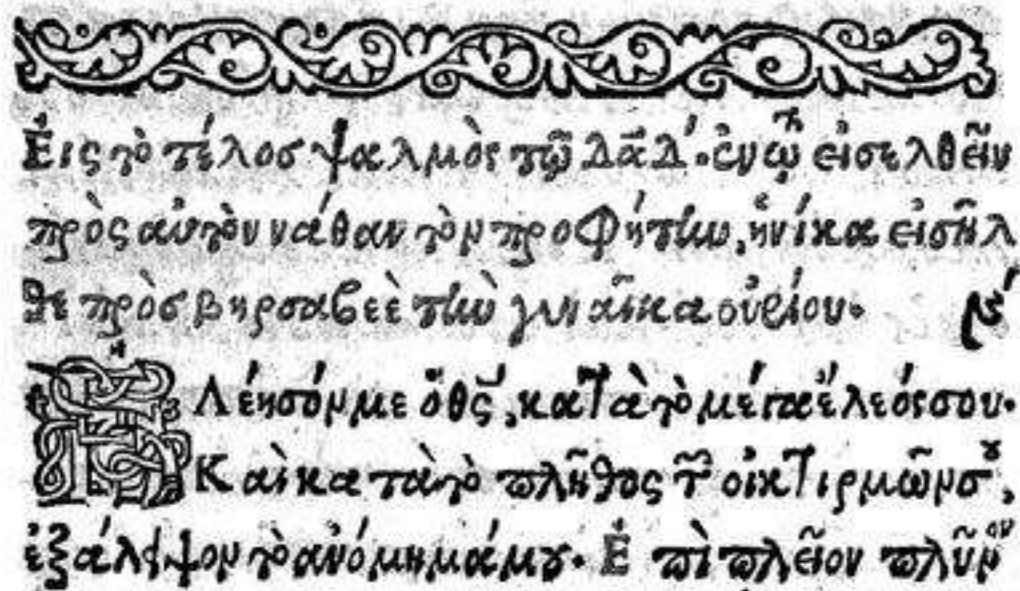 Εἰς τὸ τέλος ψαλμὸς τῷ Δᾱδ´. ἐν ᾧ τῷ εἰσελθεῖν
πρὸς αὐτὸν νάθαν τὸν προφήτην, ἡνίκα εἰσῆλ
θε πρὸς βηρσαβεὲ τὴν γυναῖκα οὐρίου. ν´
Ελέησόν με ὁ θς̄, κατὰ τὸ μέγα ἔλεός σου.
Καὶ κατὰ τὸ πλῆθος τῶν οἰκτιρμῶν σου,
ἐξάλειψον τὸ ἀνόμημά μου. Ἐπὶ πλεῖον πλῦνον